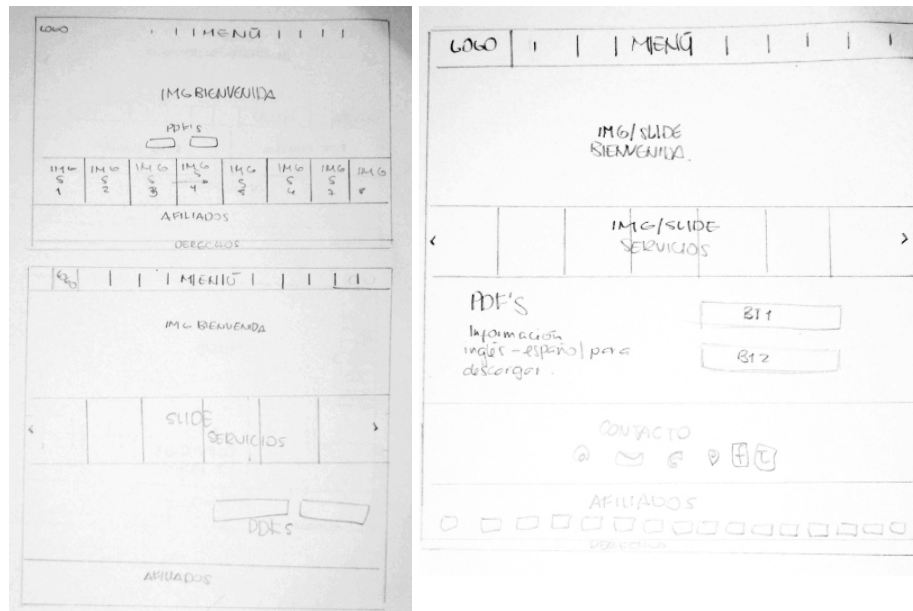 LOGO
MENÚ
IMG BIENVENIDA
PDF'S
IMG S 1
IMG S 2
IMG S 3
IMG S 4
IMG S
IMG S
IMG S
IMG
AFILIADOS
DERECHOS
LOGO
MENÚ
IMG BIENVENIDA
<
SLIDE
SERVICIOS
>
PDF'S
AFILIADOS
LOGO
MENÚ
IMG/SLIDE
BIENVENIDA.
<
IMG/SLIDE
SERVICIOS
>
PDF'S
Información
inglés-español para
descargar.
BT1
BT2
CONTACTO
AFILIADOS